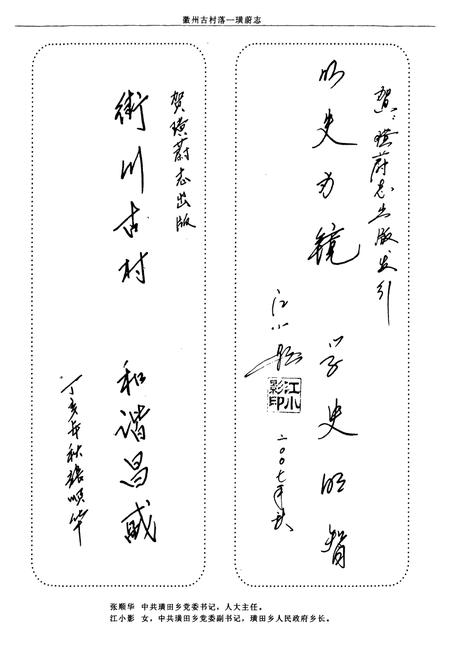 徽州古村落—璜蔚志
贺：璜蔚志出版发行
以史为镜 学史明智
江小影
江小影印
二〇〇七年秋
贺璜蔚志出版
川古村 和谐昌盛
丁亥年秋張順华
张顺华 中共璜田乡党委书记，人大主任。
江小影 女，中共璜田乡党委副书记，璜田乡人民政府乡长。